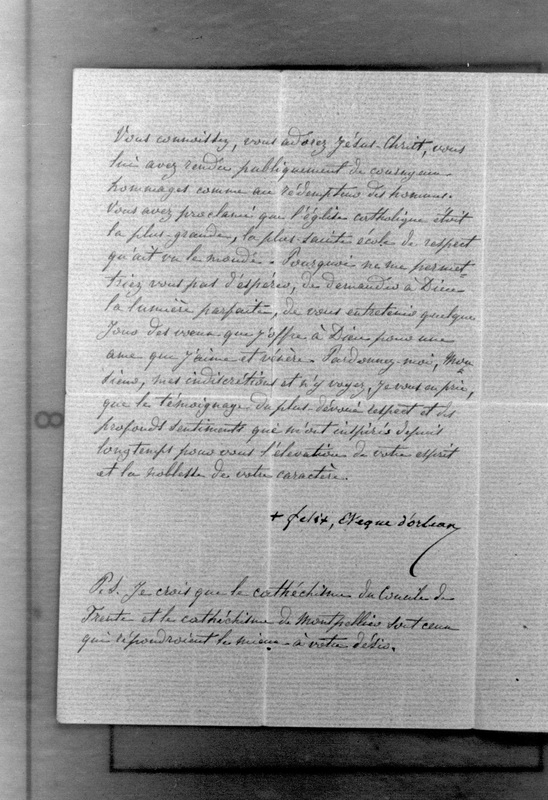 Vous connoissez, vous adorez Jésus-Christ, vous
lui avez rendu publiquement de courageux
hommages comme au rédempteur des hommes.
Vous avez proclamé que l'église catholique étoit
la plus grande, la plus sainte école de respect
qu'ait vu le monde. Pourquoi ne me permet-
triez vous pas d'espérer, de demander à Dieu
la lumière parfaite, de vous entretenir quelque
jour des vœux que j'offre à Dieu pour une
ame que j'aime et vénère. Pardonnez-moi, Mon-
sieur, mes indiscrétions et n'y voyez, je vous en prie,
que le témoignage du plus dévoué respect et des
profonds sentiments que m'ont inspirés depuis
longtemps pour vous l'élévation de votre esprit
et la noblesse de votre caractère.
+ félix, évêque d'orléans
P.S. Je crois que le cathéchisme du Concile de
Trente et le cathéchisme de Montpellier sont ceux
qui répondroient le mieux à votre désir.
8